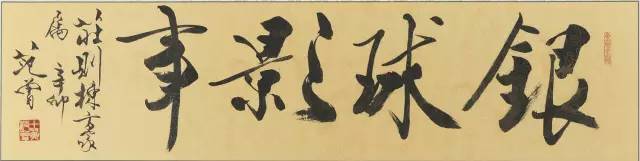 銀球影事
莊則棟方家
屬 辛卯
范曾